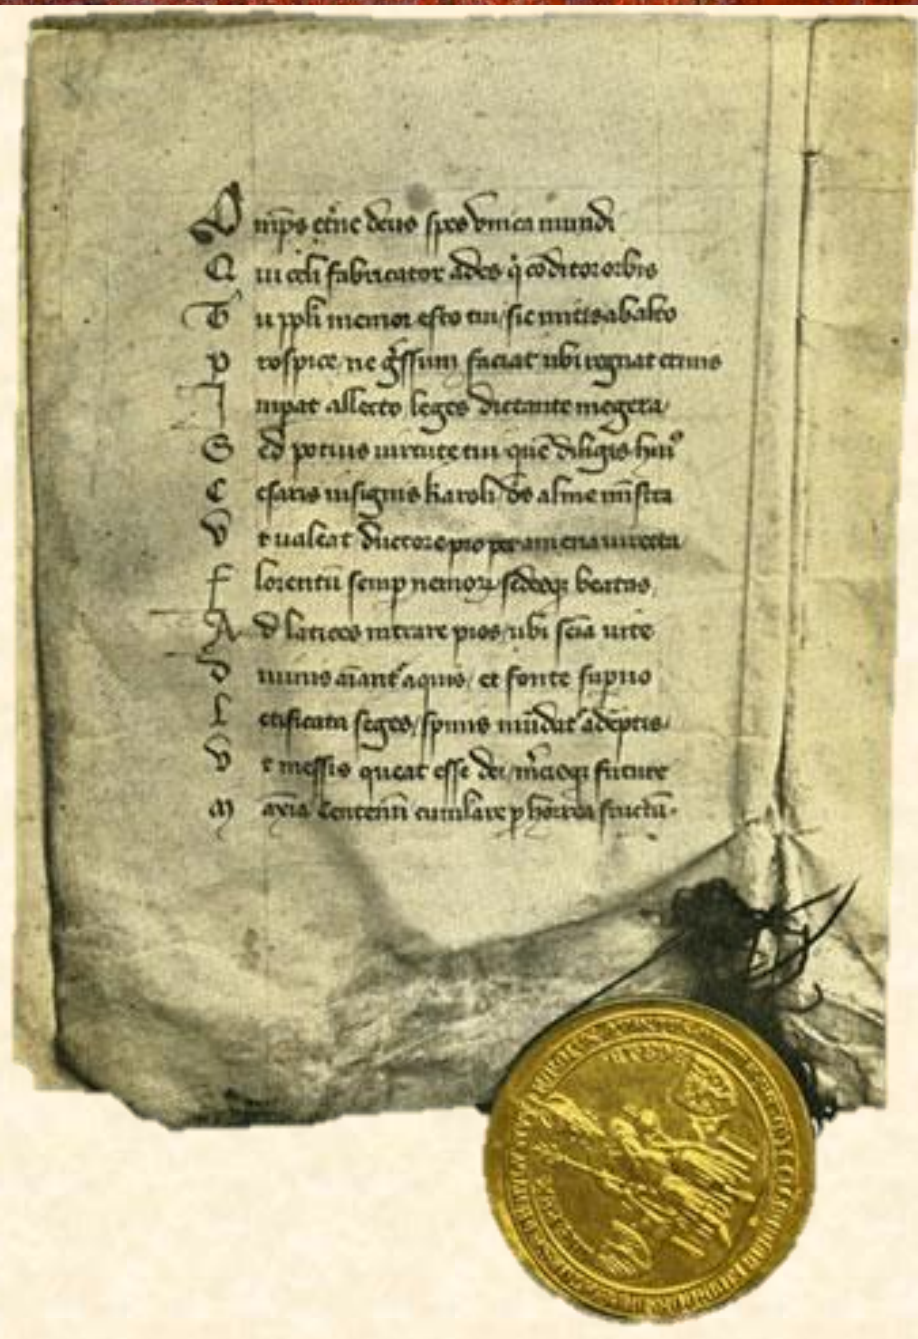 O mps et̾ne deus spes vnica mundi
Q ui celi fabricator ades q̇ cōditor orbis
T u ppl̓i memor esto tui / sic mitis ab alto
P rospice / ne g̾ssum faciat ubi regnat erinis
I mpat allecto leges dictante megera /
S ed potius uirtute tui quē diligis hui᷒
C esaris insignis karoli / ds̄ alme mīstra
V t ualeat ductore pio per amena uireta /
F lorentū semp nemoꝝ sedesqꝫ beatas /
A d latices intrare pios / ubi seīa uite
D iuinis aīant᷑ aquis / et fonte supno
L etificata seges / spinis mūdat᷑ adēptis /
V t messis queat esse dei / m̾cisqꝫ future
M axīa centenū cumulare p horrea fructū .